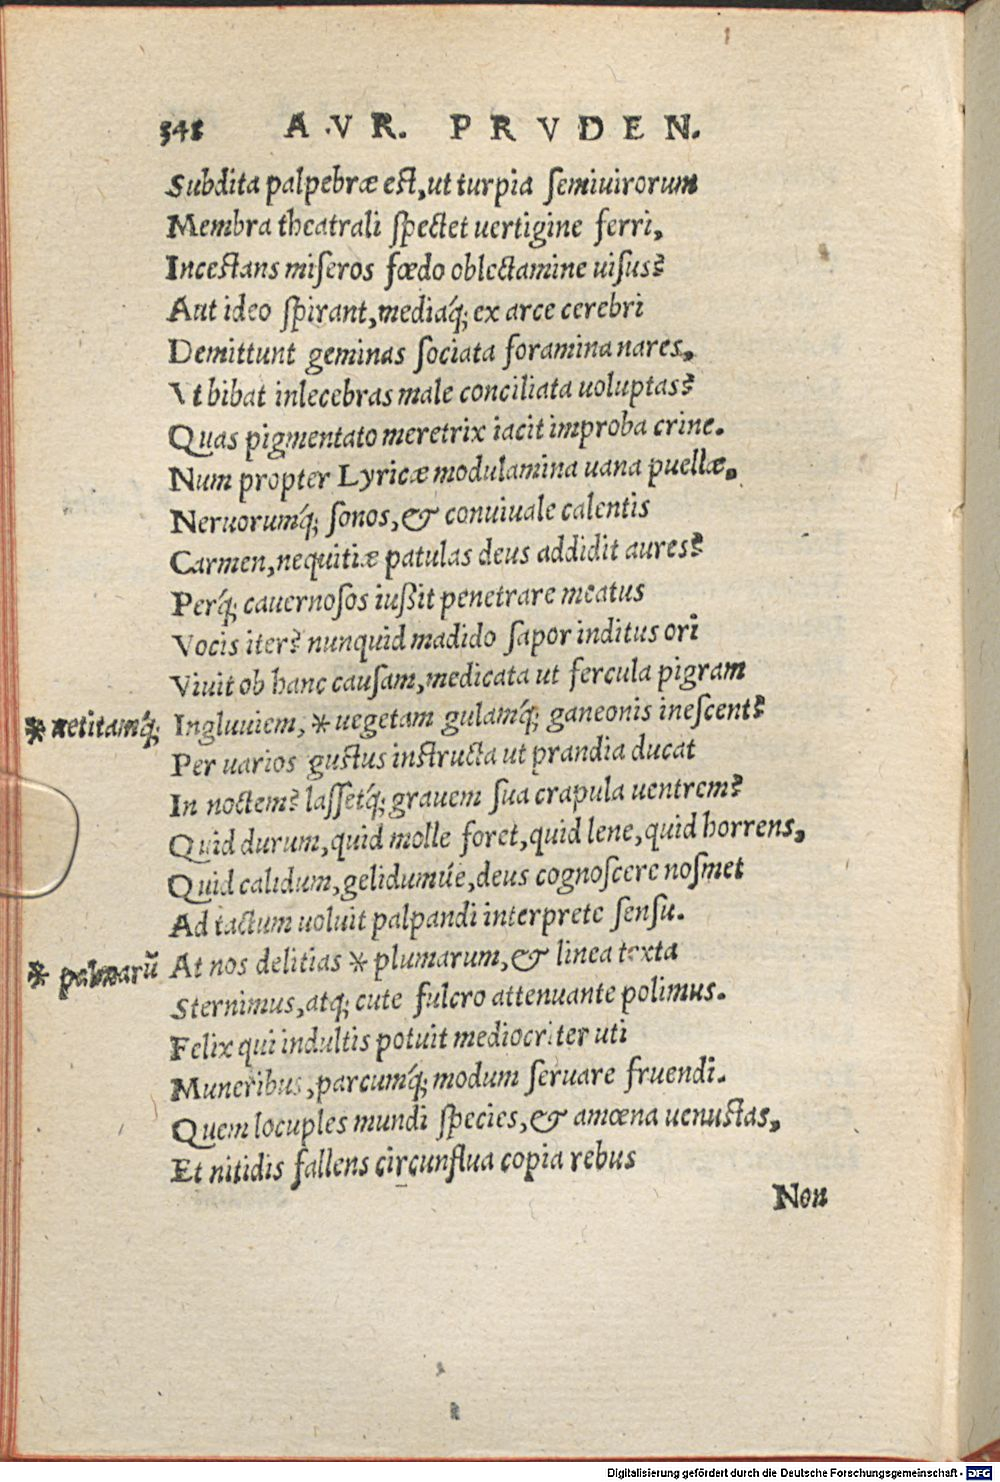 348 AVR. PRVDEN.
Subdita palpebræ est, ut turpia semiuirorum
Membra theatrali spectet uertigine ferri,
Incestans miseros fœdo oblectamine uisus?
Aut ideo spirant, mediaq́; ex arce cerebri
Demittunt geminas sociata foramina nares,
Vt bibat inlecebras male conciliata uoluptas?
Quas pigmentato meretrix iacit improba crine.
Num propter Lyricæ modulamina uana puellæ,
Neruorumq́; sonos, & conuiuale calentis
Carmen, nequitiæ patulas deus addidit aures?
Perq́; cauernosos iußit penetrare meatus
Vocis iter? nunquid madido sapor inditus ori
Viuit ob hanc causam, medicata ut fercula pigram
* uetitamq́; Ingluuiem, * uegetam gulamq́; ganeonis inescent?
Per uarios gustus instructa ut prandia ducat
In noctem? lassetq́; grauem sua crapula uentrem?
Quid durum, quid molle foret, quid lene, quid horrens,
Quid calidum, gelidumúe, deus cognoscere nosmet
Ad tactum uoluit palpandi interprete sensu.
* palmarũ At nos delitias * plumarum, & linea texta
Sternimus, atq; cute fulcro attenuante polimus.
Felix qui indultis potuit mediocriter uti
Muneribus, parcumq́; modum seruare fruendi.
Quem locuples mundi species, & amœna uenustas,
Et nitidis fallens circunflua copia rebus
Non
Digitalisierung gefördert durch die Deutsche Forschungsgemeinschaft - DFG